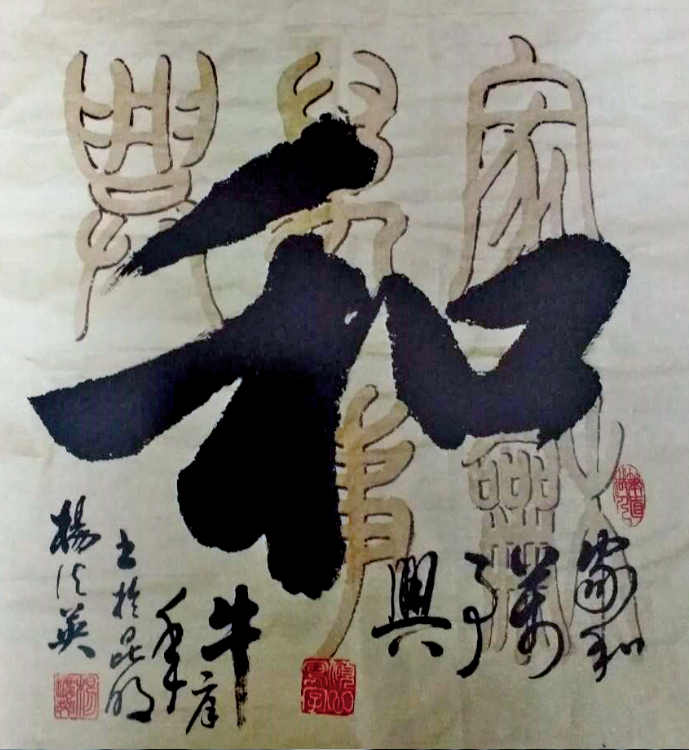 和
家龢
萬事
興
家和
萬
事
興
牛
年
书於昆明
楊
英